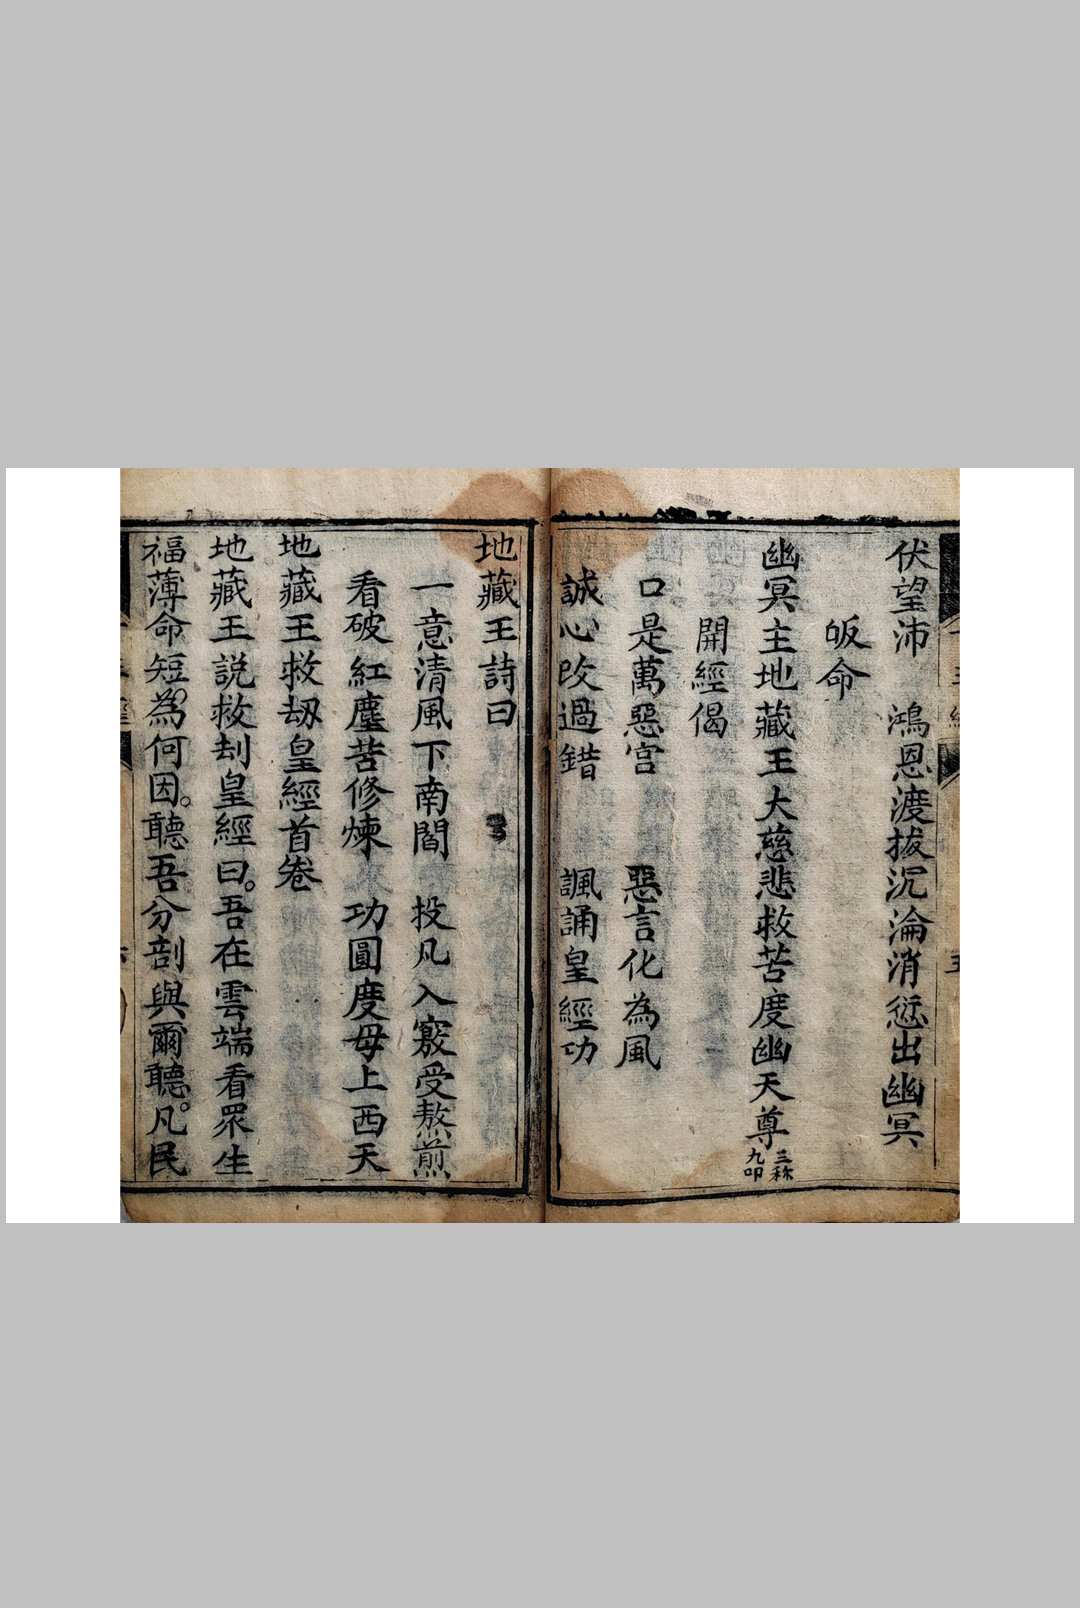 伏望沛 鴻恩渡拔沉淪消愆出幽冥
皈命
幽冥主地藏王大慈悲救苦度幽天尊三称九叩
開經偈
口是萬惡宫 惡言化為風
誠心改過錯 諷誦皇經功
地藏王詩曰
一意清風下南閻 投凡入竅受熬煎
看破紅塵苦修煉 功圓度母上西天
地藏王救刼皇經首卷
地藏王説救刦皇經曰。吾在雲端看眾生
福薄命短。為何因。聽吾分剖與爾聽。凡民